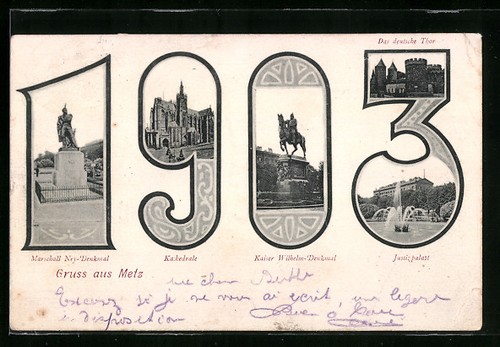 Das deutsche Thor
1903
Marschall Ney-Denkmal
Kathedrale
Kaiser Wilhelm-Denkmal
Justizpalast
Gruss aus Metz
chère Berthe
Excusez si je ne vous ai écrit, une légère
indisposition